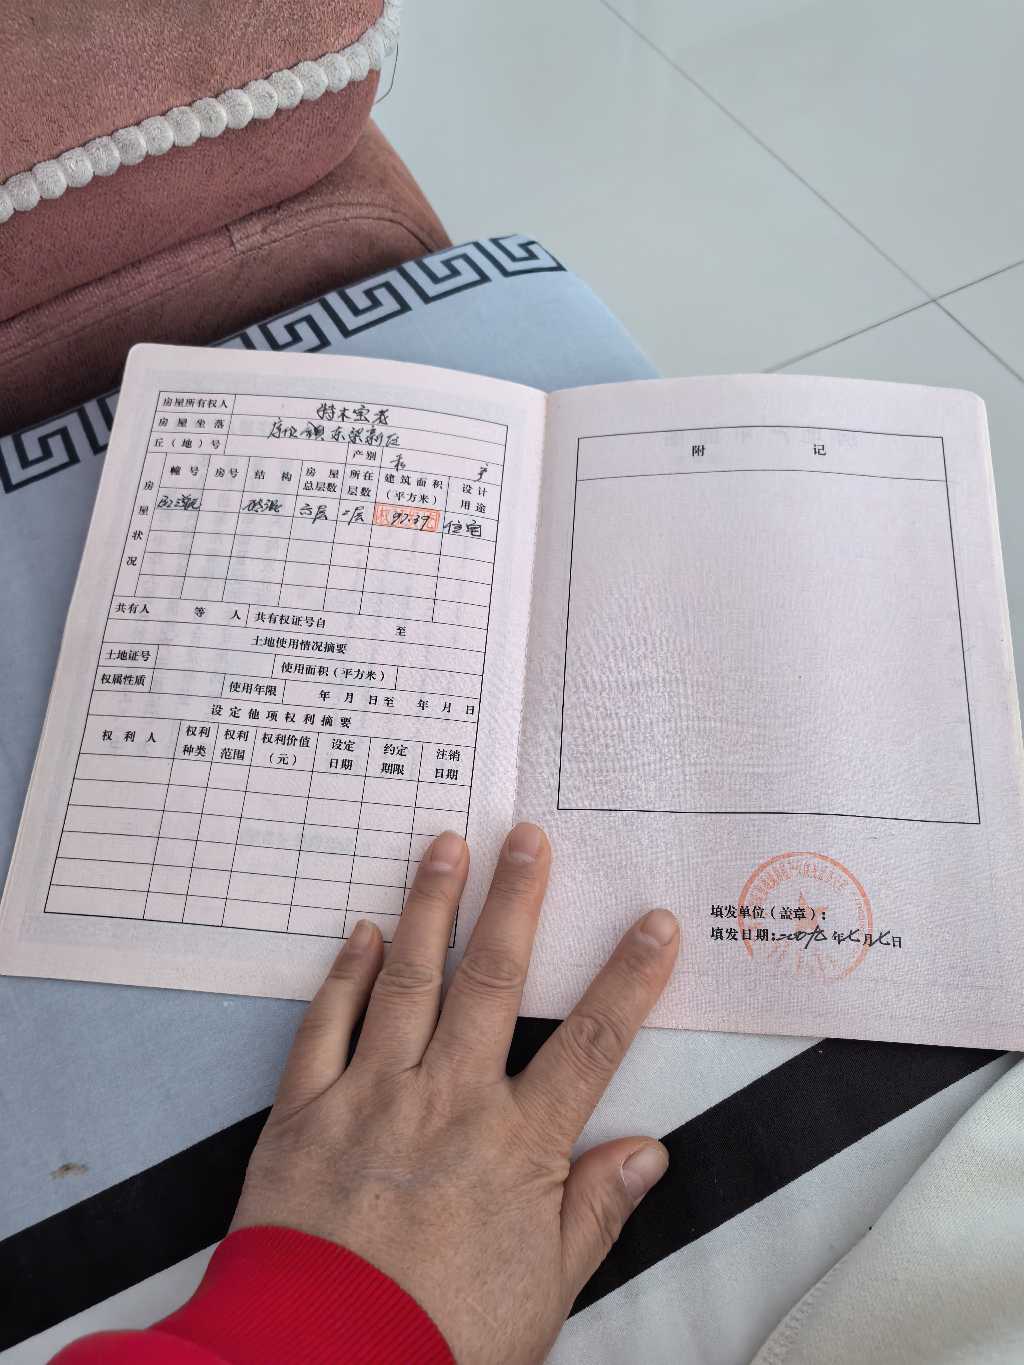 房屋所有权人 特木宝老
房屋坐落 库伦镇东梁新区
丘（地）号 产别 私
房屋状况
幢号 房号 结构 房屋总层数 所在层数 建筑面积（平方米） 设计用途
砖混 六层 二层 97.39 住宅
共有人 等 人 共有权证号自 至
土地使用情况摘要
土地证号 使用面积（平方米）
权属性质 使用年限 年 月 日至 年 月 日
设定他项权利摘要
权利人 权利种类 权利范围 权利价值（元） 设定日期 约定期限 注销日期
附 记
填发单位（盖章）：
填发日期： 年七月七日